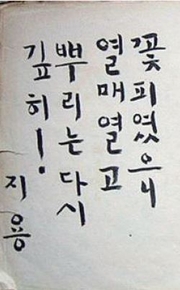 꽃피였으니
열매열고
뿌리는다시
깊히!
지용